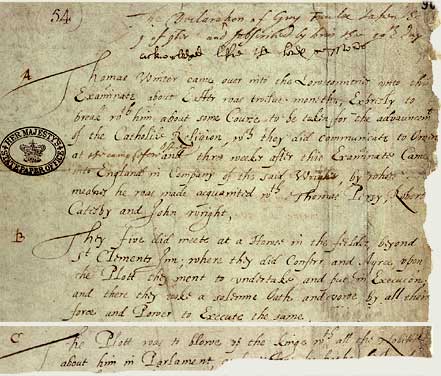 54)
The Declaration of Guy Fawkes taken the
9 of 9ber and subscribed by him the 10th day
acknowledged before the Lords
A
Thomas Winter came over into the Lowcountreis unto this
Examinate about Easter was twelve moneths, Expresly to
break wth him about some Course to be taken for the advancement
of the Catholick Religion, wch they did communicate to Owen
at the same time and three weeks after this Examinate Came
into England in Company of the said Winter, by whose
meanes he was made acquainted wth Thomas Percy, Robert
Catesby and John wright,
HER MAJESTY'S
STATE PAPER OFFICE
B
They five did meete at a House in the fields, beyond
St Clements Inn; where they did Confer, and Agree upon
the Plott they ment to undertake and put in Execution
and there they tooke a solemne Oath and vowe by all their
force and Power to Execute the same.
C
The Plott was to blowe up the Kinge wth all the Nobilitie
about him in Parlament,